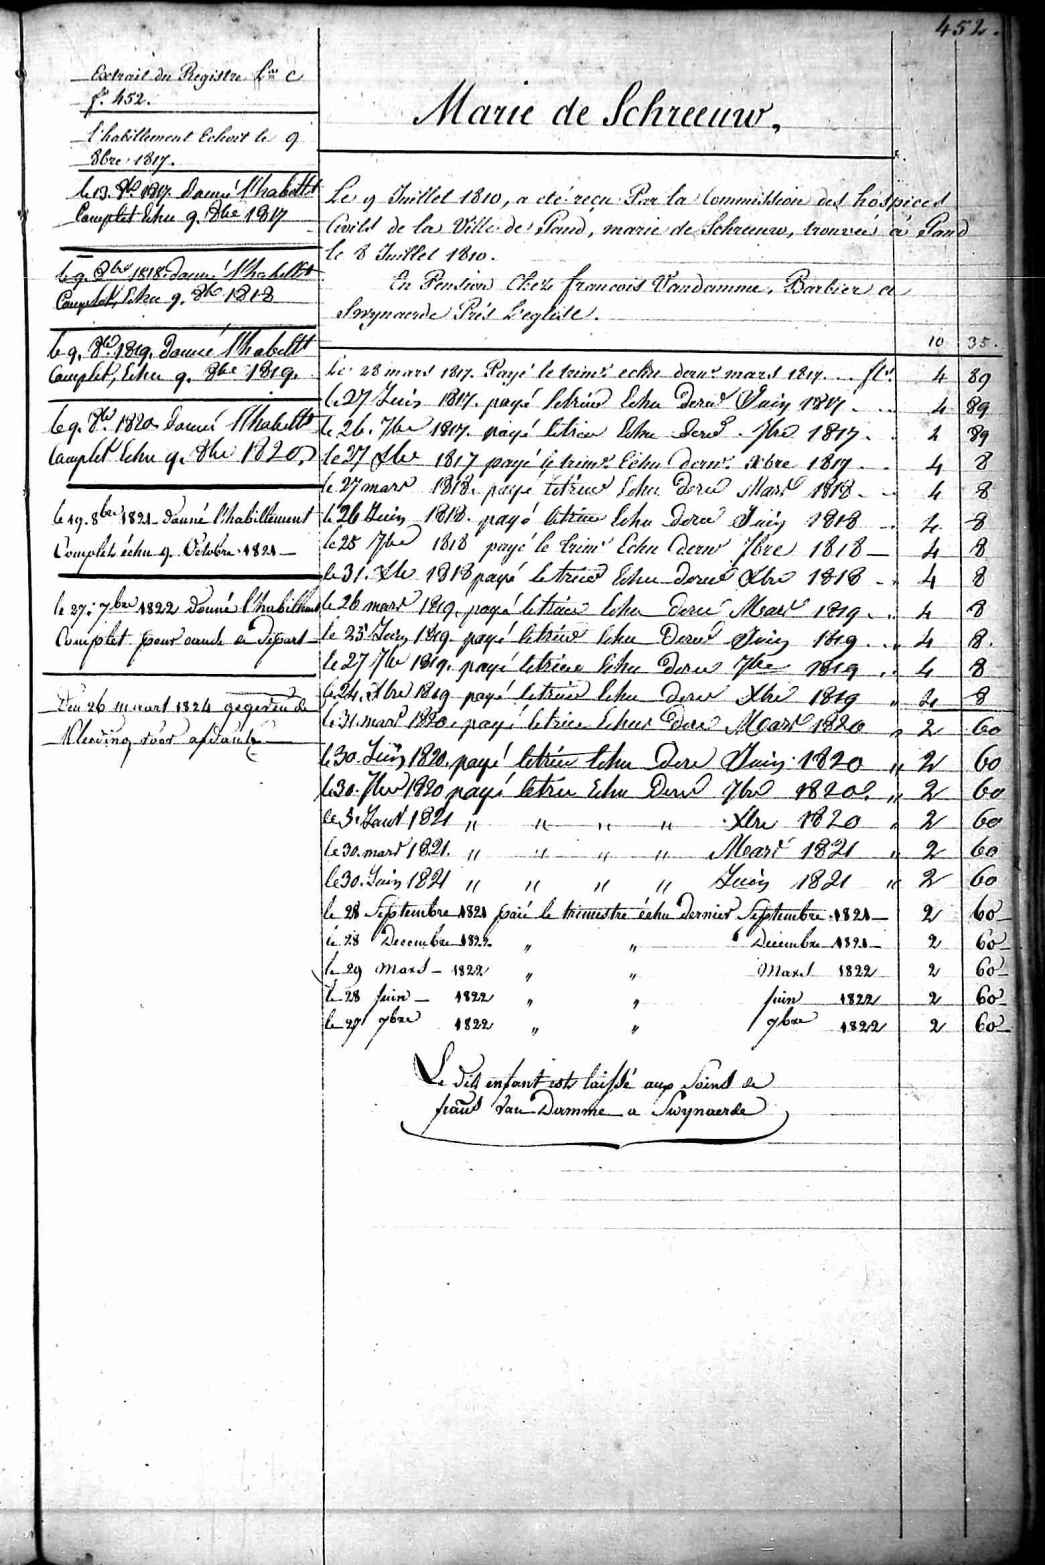 452.
Extrait du Registre L.re C
f.o 452.
l'habillement Echoit le 9
8bre 1817.
le 13. 8bre 1817. donné l'habillt
Complet Echu 9. 8bre 1817
le 9. 8bre 1818. donné l'habillt
Complet, Echu 9. 8bre 1818
le 9. 8bre 1819. donné l'habillt
Complet, Echu 9. 8bre 1819.
le 9. 8bre 1820. donné l'habillt
Complet Echu 9. 8bre 1820
le 19. 8bre 1821 donné l'habillement
Complet échu 9. Octobre 1821 —
le 27. 7bre 1822 donné l'habillement
Complet pour cause de Départ
Den 26 maart 1824 gegeven de
Kleeding voor
Marie de Schreeuw,
Le 9 Juillet 1810, a été reçu Par la Commission des hospices
Civils de la Ville de Gand, marie de Schreeuw, trouvée à Gand
le 8 Juillet 1810.
En Pension Chez francois Vandamme, Barbier a
Swynaerde Près L'eglise.
10 35.
Le 28 mars 1817. Payé le trim.e echu dern.r mars 1817. . . fl.s 4 89
le 27 Juin 1817. payé letrim Echu dern Juin 1817 . . 4 89
le 26. 7bre 1817. payé letrim Echu dern 7bre 1817 . . 4 89
le 27 Xbre 1817 payé le trim.e Echu dern.r Xbre 1817 . . 4 8
le 27 mars 1818. payé letrim Echu dern Mars 1818 . . 4 8
le 26 Juin 1818. payé letrim Echu dern Juin 1818 . . 4 8
le 28 7bre 1818 payé le trim Echu dern 7bre 1818 — 4 8
le 31. Xbre 1818 payé letrim Echu dern Xbre 1818 . . 4 8
le 26 mars 1819. payé letrim Echu dern Mars 1819 . . 4 8
le 25 Juin 1819. payé letrim Echu dern Juin 1819 . . 4 8.
le 27 7bre 1819. payé letrim Echu dern 7bre 1819 . . 4 8
le 24. Xbre 1819 payé letrim Echu dern Xbre 1819 " 4 8
le 31. mars 1820. payé letrim Echu dern Mars 1820 " 2 60
le 30. Juin 1820. payé letrim Echu dern Juin 1820 " 2 60
le 30. 7bre 1820 payé letrim Echu Dern 7bre 1820. " 2 60
le 3. Janv 1821 " " " " Xbre 1820 " 2 60
le 30. mars 1821. " " " " Mars 1821 " 2 60
le 30. Juin 1821 " " " " Juin 1821 " 2 60
le 28 Septembre 1821 paié le trimestre échu dernier Septembre 1821 — 2 60
le 28 Decembre 1821 " " Décembre 1821 — 2 60
le 29 Mars — 1822 " " Mars 1822 2 60
le 28 Juin — 1822 " " Juin 1822 2 60
le 27 7bre 1822 " " 7bre 1822 2 60
Le dit enfant est laissé aux Soins de
frans Van Damme a Swynaerde